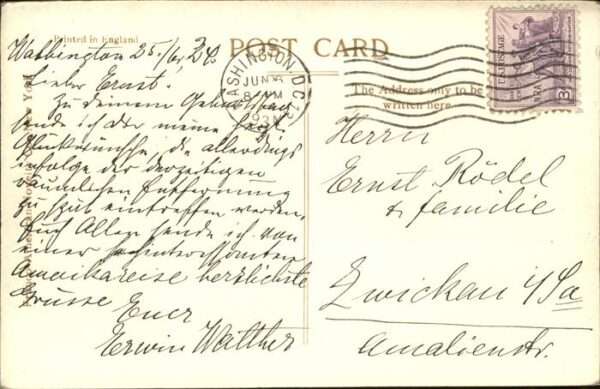 Printed in England
POST CARD
WASHINGTON, D.C.
JUN
8 PM
The Address only to be
written here.
U.S. POSTAGE
3
Washington 25./6.
Lieber Ernst!
Zu deinem Geburtstag
sende ich dir meine
Glückwünsche, die allerdings
infolge der derzeitigen
räumlichen Entfernung
zu spät eintreffen werden.
Euch Allen sende ich von
einer
Amerikareise herzlichste
Grüsse Euer
Erwin Walther
Herrn
Ernst Rödel
& familie
Zwickau i/Sa
Amalienstr.